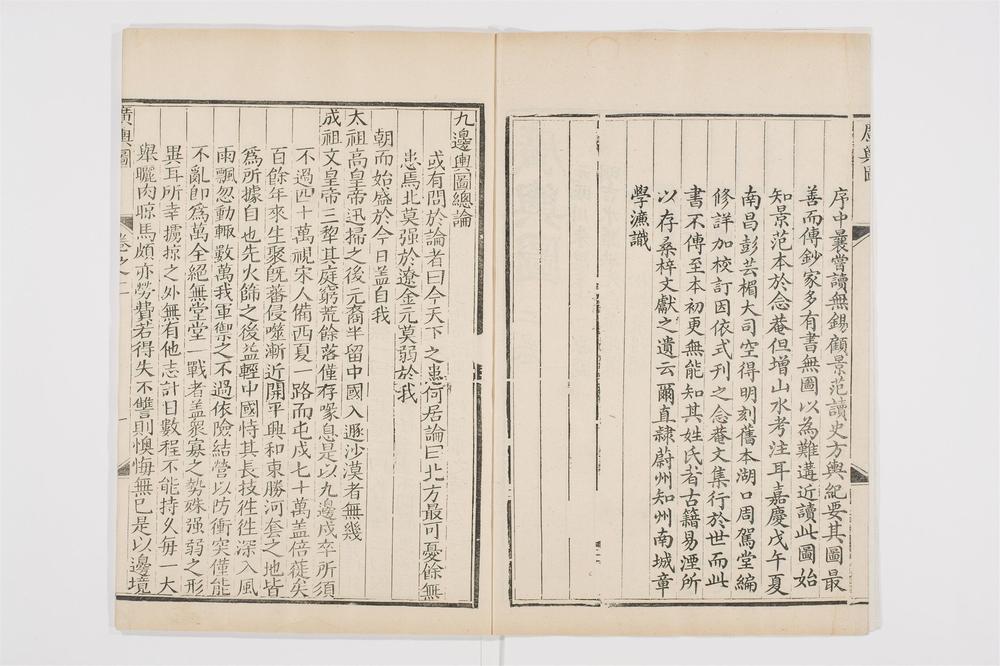 廣輿圖
序中曩嘗讀無錫顧景范讀史方輿紀要其圖最
善而傳鈔家多有書無圖以為難遘近讀此圖始
知景范本於念菴但增山水考注耳嘉慶戊午夏
南昌彭芸楣大司空得明刻舊本湖口周駕堂編
修詳加校訂因依式刊之念菴文集行於世而此
書不傳至本初更無能知其姓氏者古籍易湮所
以存桑梓文獻之遺云爾直隸蔚州知州南城章
學濂識
九邊輿圖總論
或有問於論者曰今天下之患何居論曰北方最可憂餘無
患焉北莫强於遼金元莫弱於我
朝而始盛於今日盖自我
太祖高皇帝迅掃之後元裔半留中國入遯沙漠者無幾
成祖文皇帝三犂其庭窮荒餘落僅存喙息是以九邊戍卒所須
不過四十萬視宋人備西夏一路而屯戍七十萬盖倍蓰矣
百餘年來生聚旣蕃侵噬漸近開平興和東勝河套之地皆
爲所據自也先火篩之後益輕中國恃其長技徃徃深入風
雨飄忽動輙數萬我軍禦之不過依險結營以防衝突僅能
不亂卽爲萬全絕無堂堂一戰者盖衆寡之勢殊强弱之形
異耳所幸擄掠之外無有他志計日數程不能持久每一大
舉曬肉晾馬頗亦勞費若得失不讐則懊悔無已是以邊境
廣輿圖
卷之二